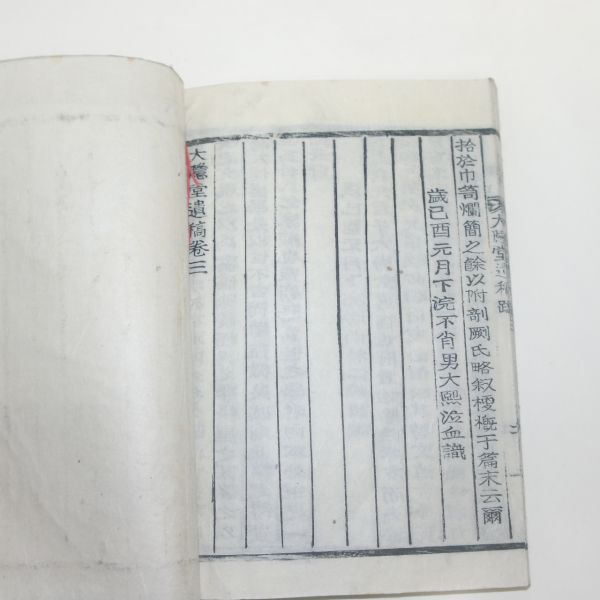 大隱堂遺稿跋
拾於巾笥爛簡之餘以附剞劂氏略叙梗槪于篇末云爾
歲己酉元月下浣不肖男大熙泣血識
大隱堂遺稿卷三